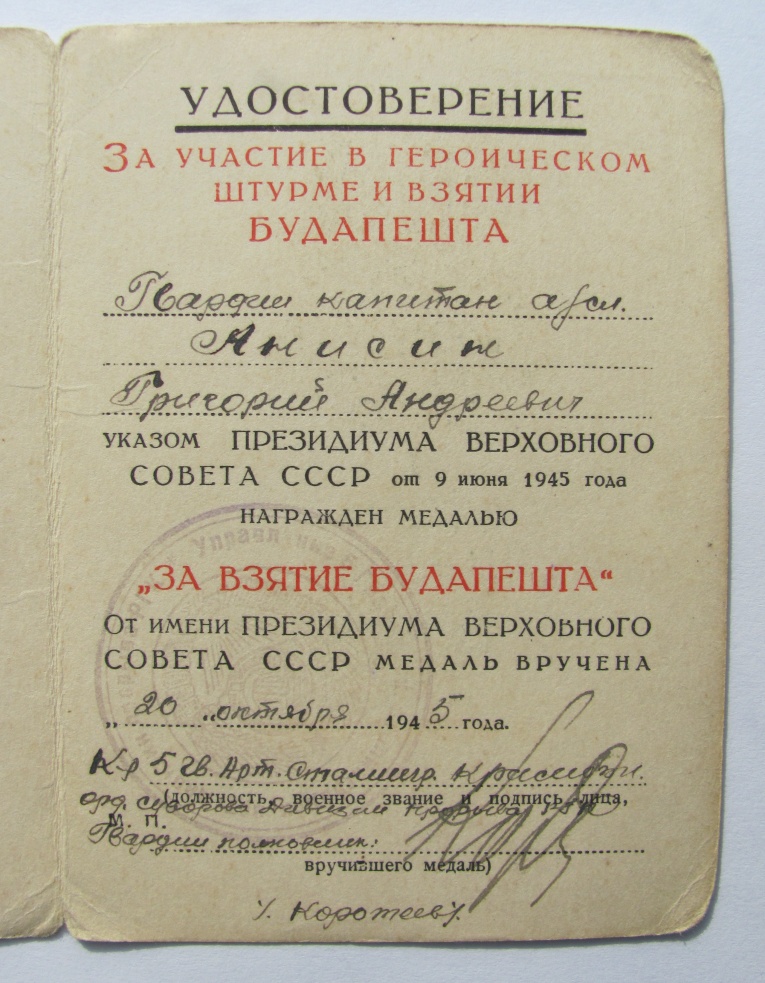 УДОСТОВЕРЕНИЕ
ЗА УЧАСТИЕ В ГЕРОИЧЕСКОМ
ШТУРМЕ И ВЗЯТИИ
БУДАПЕШТА
Гвардии капитан а/сл.
Анисин
Григорий Андреевич
УКАЗОМ ПРЕЗИДИУМА ВЕРХОВНОГО
СОВЕТА СССР от 9 июня 1945 года
НАГРАЖДЕН МЕДАЛЬЮ
„ЗА ВЗЯТИЕ БУДАПЕШТА“
ОТ ИМЕНИ ПРЕЗИДИУМА ВЕРХОВНОГО
СОВЕТА СССР МЕДАЛЬ ВРУЧЕНА
„20„ октября 1945 года.
К-р 5 гв. Арт. Сталингр. Краснозн.
(должность, военное звание и подпись лица,
орд. Суворова дивизии прорыва
М. П.
Гвардии полковник:
вручившего медаль)
/. Коротеев/.